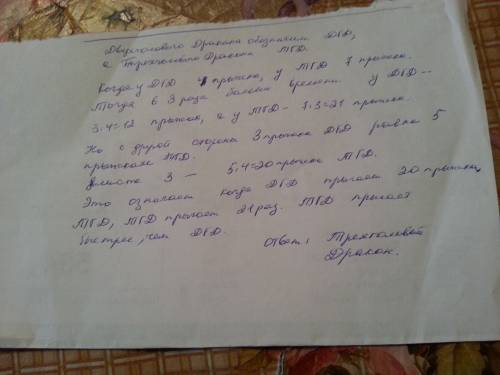 Двухголового Дракона обозначим ДГД,
а Трёхголового Дракона ТГД.
Когда у ДГД 4 прыжка, у ТГД 7 прыжка.
Тогда в 3 раза больши времени у ДГД --
3·4=12 прыжка, а у ТГД - 7·3=21 прыжка.
Но с другой стороны 3 прыжка ДГД равна 5
прыжкам ТГД.
Вместо 3 - 5·4=20 прыжка ТГД.
Это означает когда ДГД прыгает 20 прыжка
ТГД, ТГД прыгает 21 раз. ТГД прыгает
быстрее, чем ДГД.
Ответ: Трехголовый
Дракон.